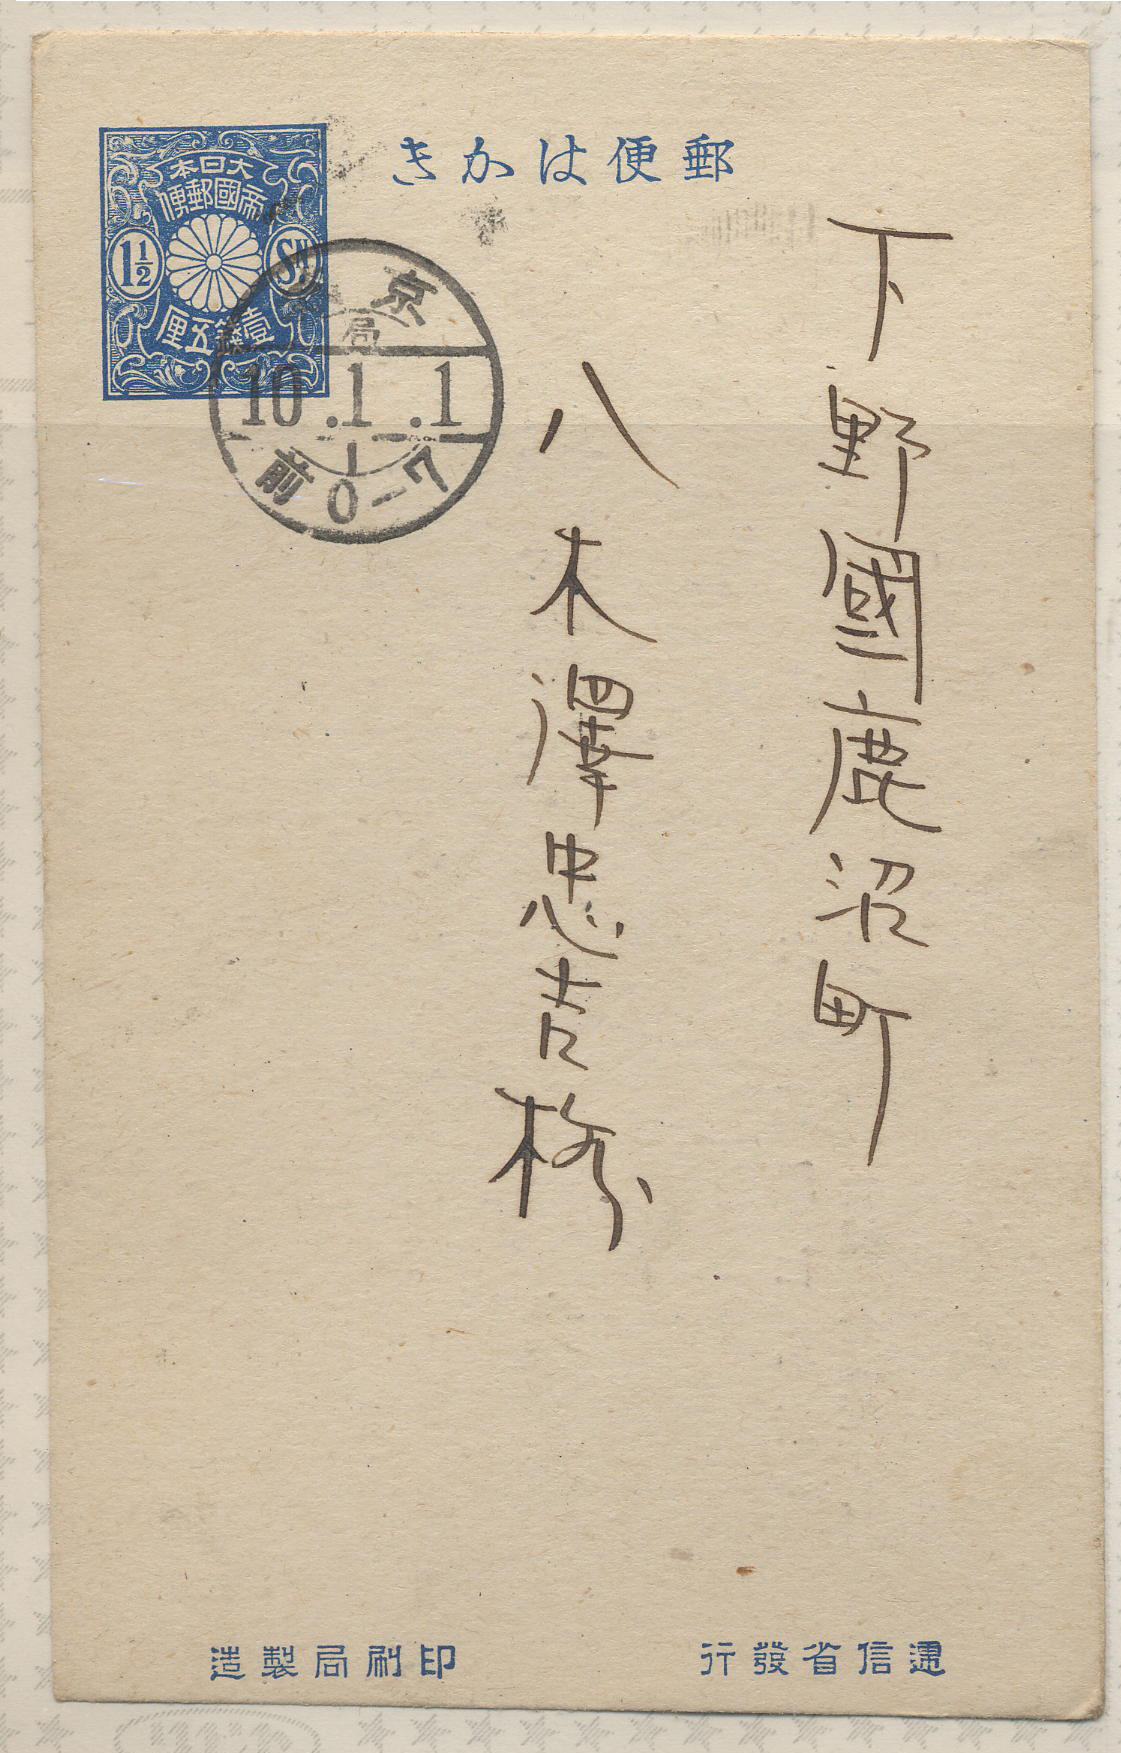 郵便はかき
大日本
帝國郵便
1½
Sn
壹錢五厘
東京
局
10.1.1
前0-7
下野國鹿沼町
八木澤忠吉様
逓信省發行
印刷局製造